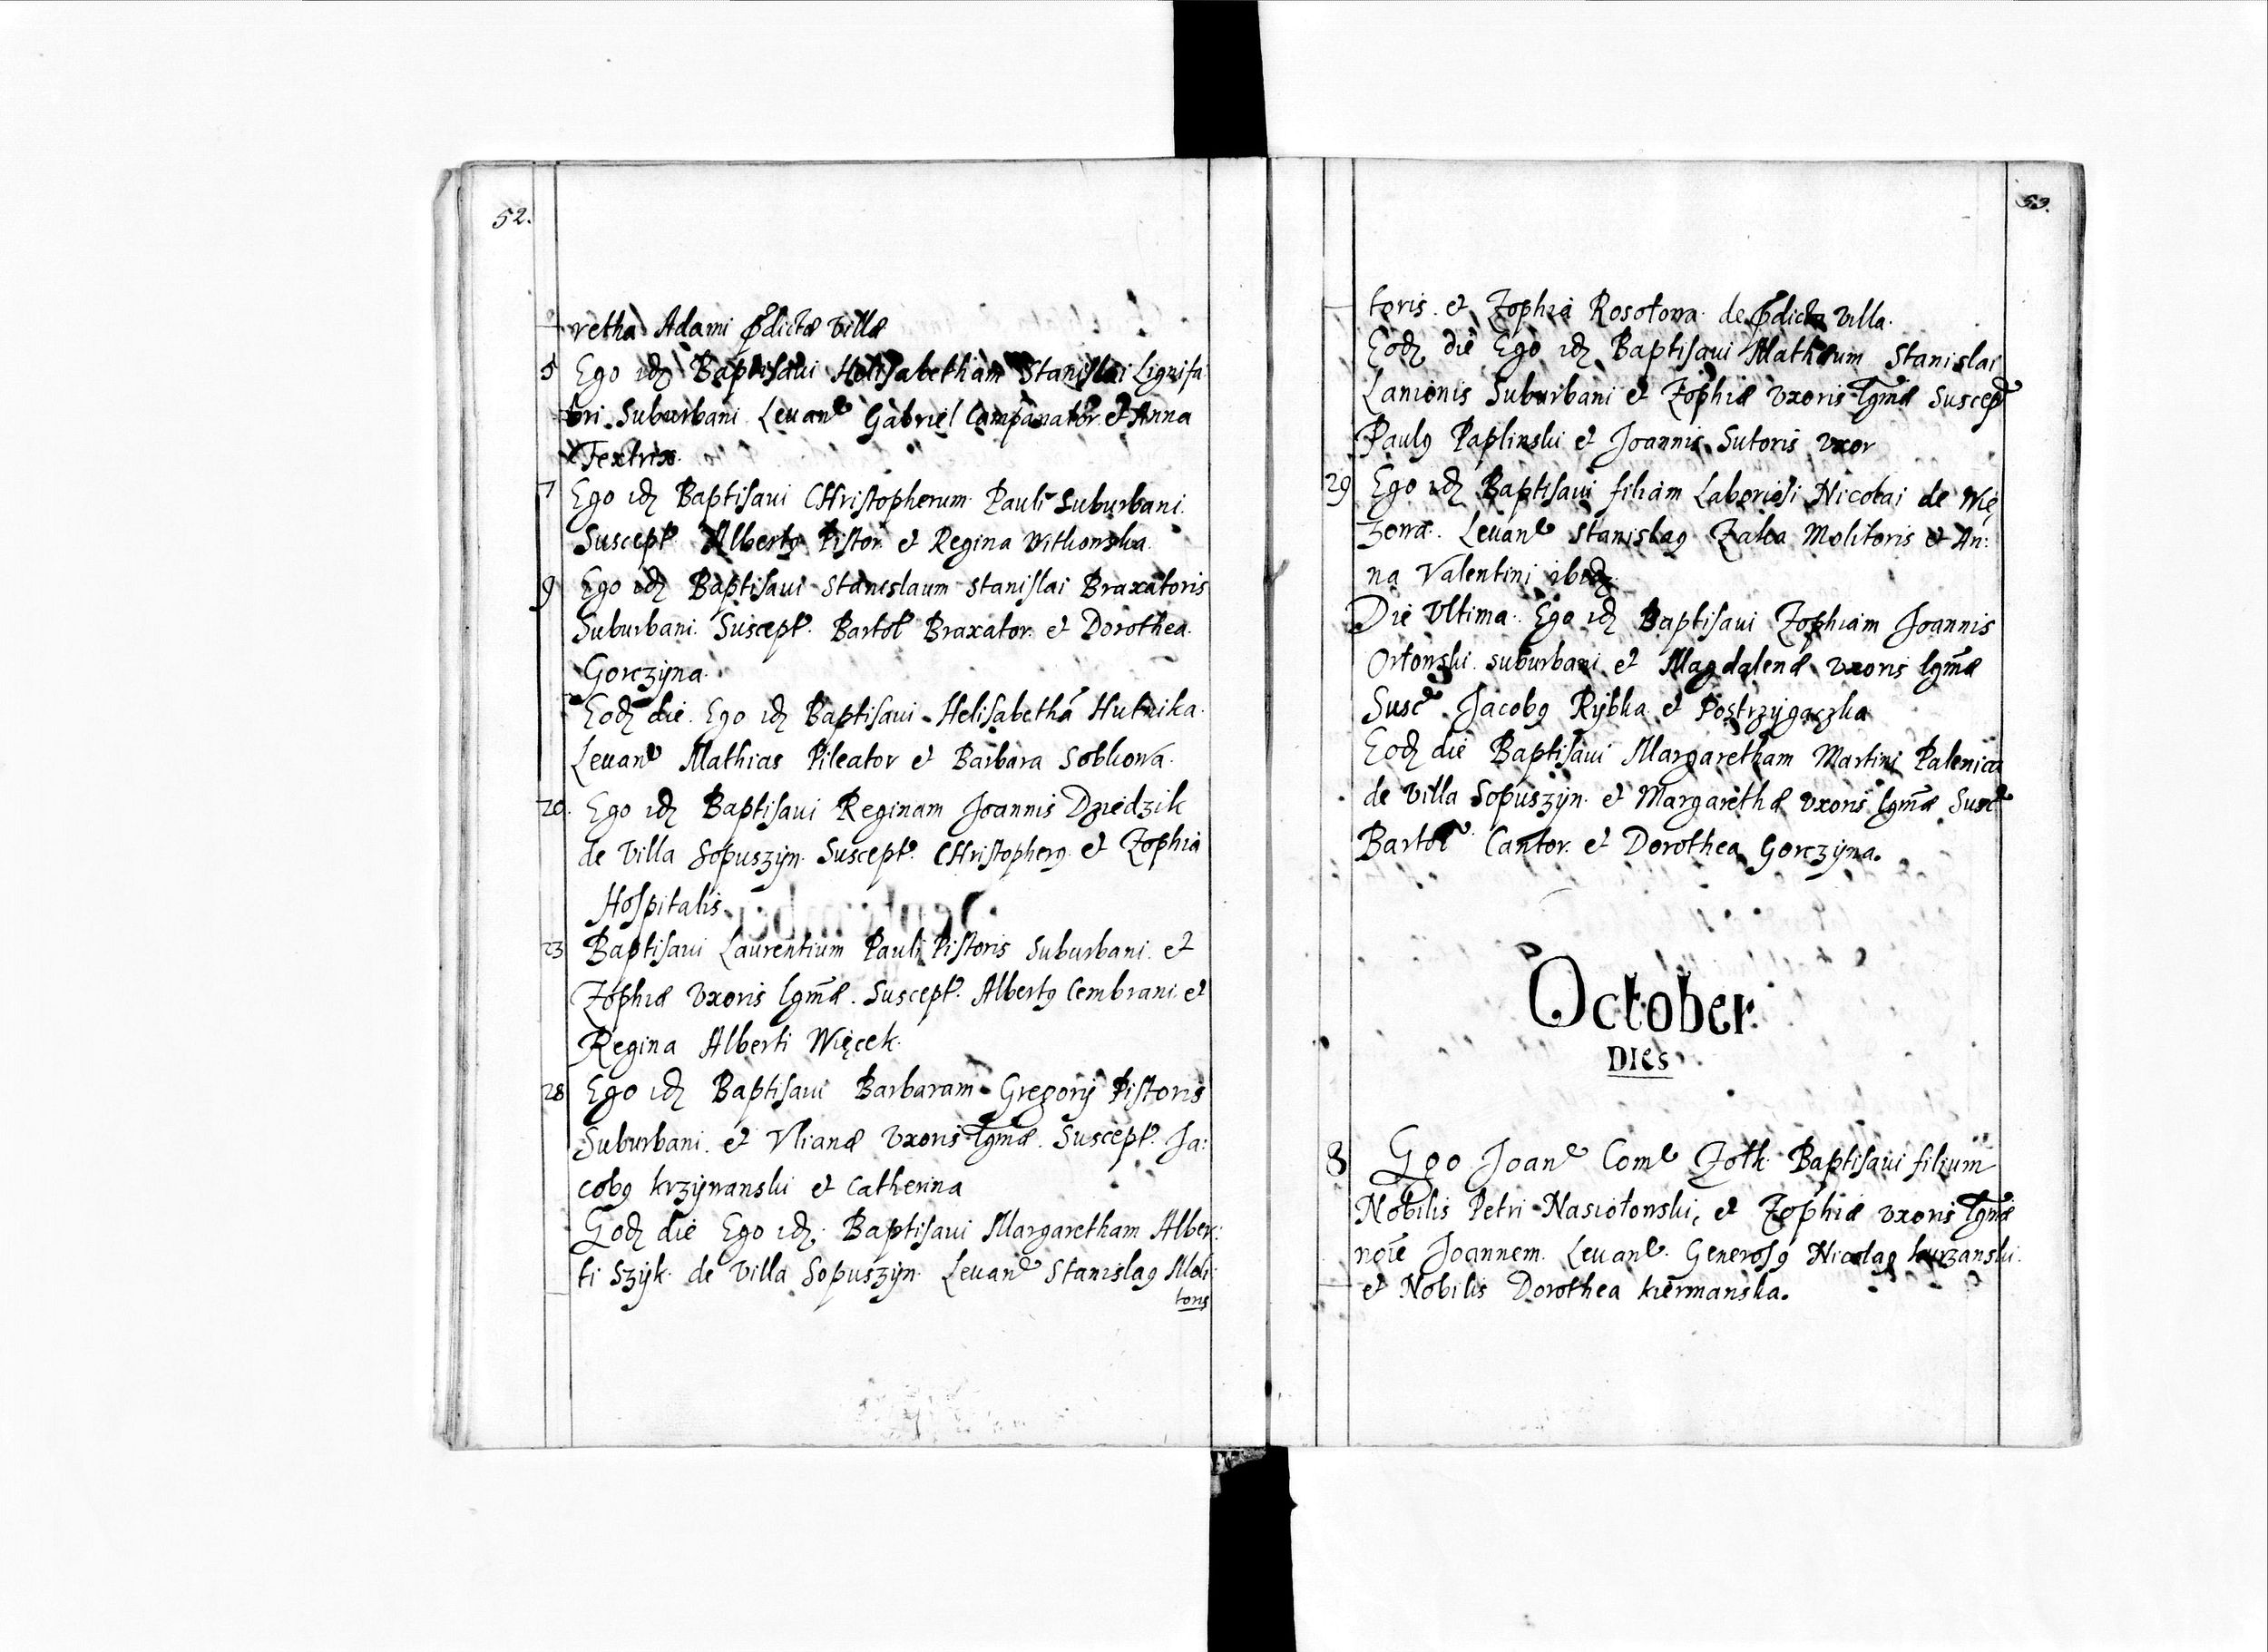 52.
retha Adami p̄dictæ villæ
5 Ego idꝫ Baptisaui Helisabetham Stanislai Lignifa
tri Suburbani Leuanᵗ Gabriel Campanator. et Anna
Textrix.
7 Ego idꝫ Baptisaui CHristopherum Pauli Suburbani.
Suscept. Albertꝰ Pistor. et Regina Witkowska.
9 Ego idꝫ Baptisaui Stanislaum Stanislai Braxatoris
Suburbani. Suscept. Bartoł Braxator. et Dorothea.
Gorczÿna.
Eodꝫ die. Ego idꝫ Baptisaui Helisabethā Hutnika.
Leuanᵗ Mathias Pileator et Barbara Sobkowa.
20. Ego idꝫ Baptisaui Reginam Joannis Dziedzik
de Villa Sopuszÿn. Suscept. CHristopherꝰ et Zophia
Hospitalis
23 Baptisaui Laurentium Pauli Pistoris Suburbani. et
Zophiæ Vxoris lgm̄æ. Suscept. Albertꝰ Cembrani. et
Regina Alberti Więcek.
28 Ego idꝫ Baptisaui Barbaram Gregorÿ Pistoris
Suburbani. et Vlianæ Vxoris lgm̄æ. Suscept. Ja:
cobꝰ krzÿwanski et Catherina
Eodꝫ die Ego idꝫ. Baptisaui Margaretham Alber:
ti Szÿk. de Villa Sopuszÿn. Leuanᵗ Stanislaꝰ Moli:
toris
53.
toris. et Zophia Rosołowa. de p̄dicta villa.
Eodꝫ die Ego idꝫ Baptisaui Matheum Stanislai
Lanionis Suburbani et Zophiæ vxoris lgm̄æ Suscepᵗ
Paulꝰ Paplinski et Joannis Sutoris vxor
29 Ego idꝫ Baptisaui filiam Laboriosi Nicolai de Wię
zowa. Leuanᵗ Stanislaꝰ Zatka Molitoris et An:
na Valentini ibidꝫ.
Die Vltima. Ego idꝫ Baptisaui Zophiam Joannis
Orłowski. suburbani. et Magdalenæ vxoris lgm̄æ
Suscᵗ Jacobꝰ Rÿbka et Postrzÿgaczka
Eodꝫ die Baptisaui Margaretham Martini Palenica
de villa Sopuszÿn. et Margarethæ vxoris lgm̄æ Suscᵗ
Bartoł Cantor. et Dorothea Gorczÿna.
October
DIES
8 Ego Joanᵉ Comᵉ Zołk. Baptisaui filium
Nobilis Petri Nasiołowski, et Zophiæ vxoris lgm̄æ
noīe Joannem. Leuanᵗ. Generosꝰ Nicolaꝰ kurzanski.
et Nobilis Dorothea kiermanska.